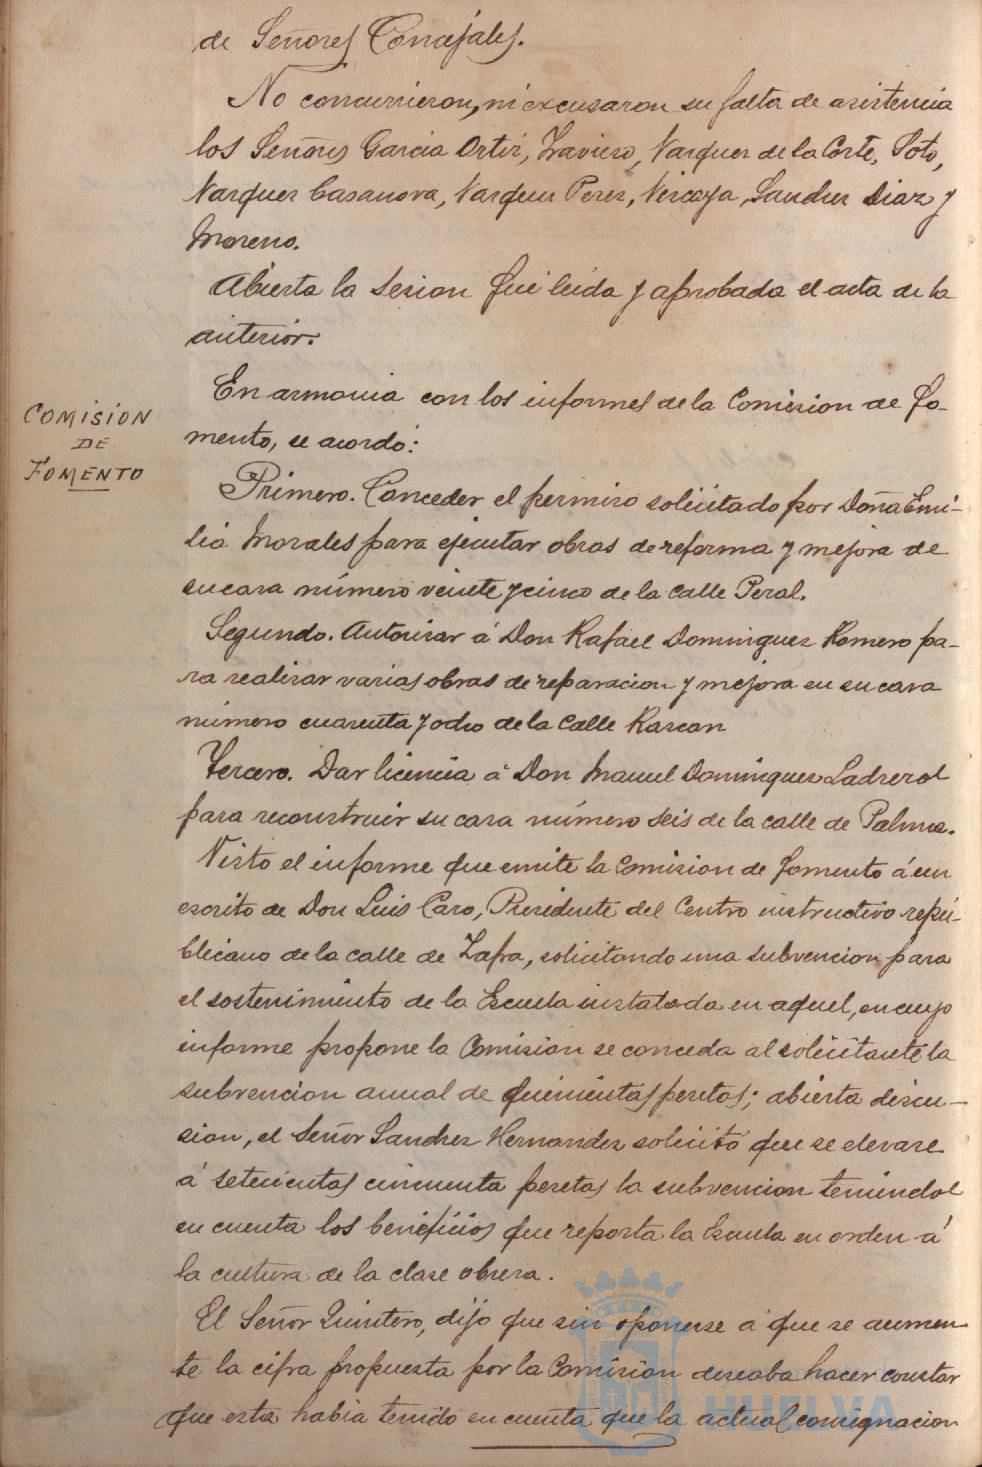 de Señores Concejales.
No concurrieron, ni excusaron su falta de asistencia
los Señores Garcia Ortiz, Travieso, Vazquez de la Corte, Soto,
Vazquez Casanova, Vazquez Perez, Vizcaya, Sanchez Diaz y
Moreno.
Abierta la sesion fué leida y aprobada el acta de la
anterior.
COMISION
DE
FOMENTO
En armonia con los informes de la Comision de Fo-
mento, se acordó:
Primero. Conceder el permiso solicitado por Doña Emi-
lia Morales para ejecutar obras de reforma y mejora de
su casa número veinte y cinco de la calle Peral.
Segundo. Autorizar á Don Rafael Dominguez Romero pa-
ra realizar varias obras de reparacion y mejora en su casa
número cuarenta y ocho de la calle Rascon
Tercero. Dar licencia á Don Manuel Dominguez
para reconstruir su casa número seis de la calle de Palma.
Visto el informe que emite la Comision de Fomento á un
escrito de Don Luis Caro, Presidente del Centro instructivo repu-
blicano de la calle de Zafra, solicitando una subvencion para
el sostenimiento de la Escuela instalada en aquel, en cuyo
informe propone la Comision se conceda al solicitante la
subvencion anual de quinientas pesetas; abierta discu-
sion, el Señor Sanchez Hernandez solicitó que se elevase
á setecientas cincuenta pesetas la subvencion teniendo
en cuenta los beneficios que reporta la Escuela en orden á
la cultura de la clase obrera.
El Señor Quintero, dijo que sin oponerse á que se aumen-
te la cifra propuesta por la Comision deseaba hacer constar
que esta habia tenido en cuenta que la actual consignacion
HUELVA